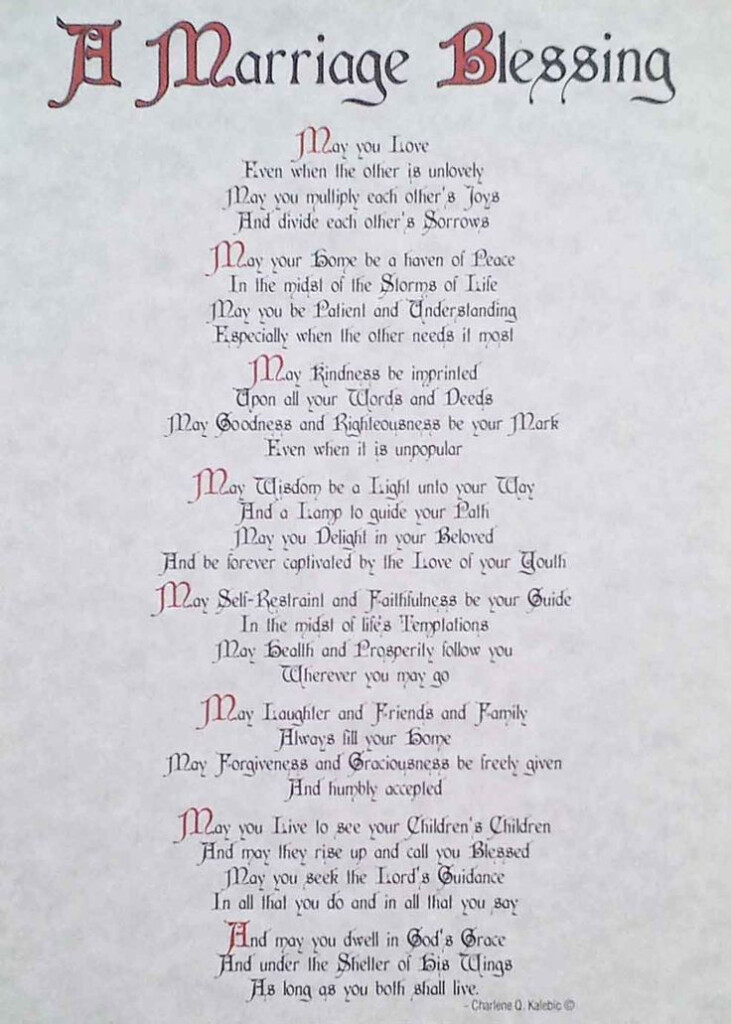 A Marriage Blessing
May you Love
Even when the other is unlovely
May you multiply each other's Joys
And divide each other's Sorrows
May your Home be a haven of Peace
In the midst of the Storms of Life
May you be Patient and Understanding
Especially when the other needs it most
May Kindness be imprinted
Upon all your Words and Deeds
May Goodness and Righteousness be your Mark
Even when it is unpopular
May Wisdom be a Light unto your Way
And a Lamp to guide your Path
May you Delight in your Beloved
And be forever captivated by the Love of your Youth
May Self-Restraint and Faithfulness be your Guide
In the midst of life's Temptations
May Health and Prosperity follow you
Wherever you may go
May Laughter and Friends and Family
Always fill your Home
May Forgiveness and Graciousness be freely given
And humbly accepted
May you Live to see your Children's Children
And may they rise up and call you Blessed
May you seek the Lord's Guidance
In all that you do and in all that you say
And may you dwell in God's Grace
And under the Shelter of His Wings
As long as you both shall live.
- Charlene Q. Kalebic ©